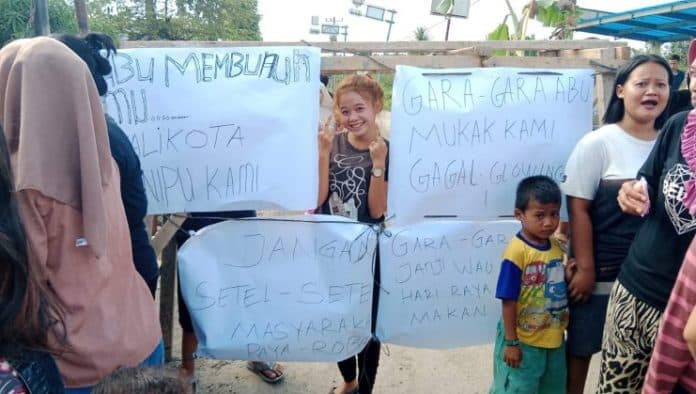 ABU MEMBUNUH
KAMI
WALIKOTA
NIPU KAMI
GARA-GARA ABU
MUKAK KAMI
GAGAL GLOWING
!
JANGAN
SETEL SETEL
MASYARAKAT
PAYA ROBA
GARA-GARA
JANJI WAU
HARI RAYA
MAKAN